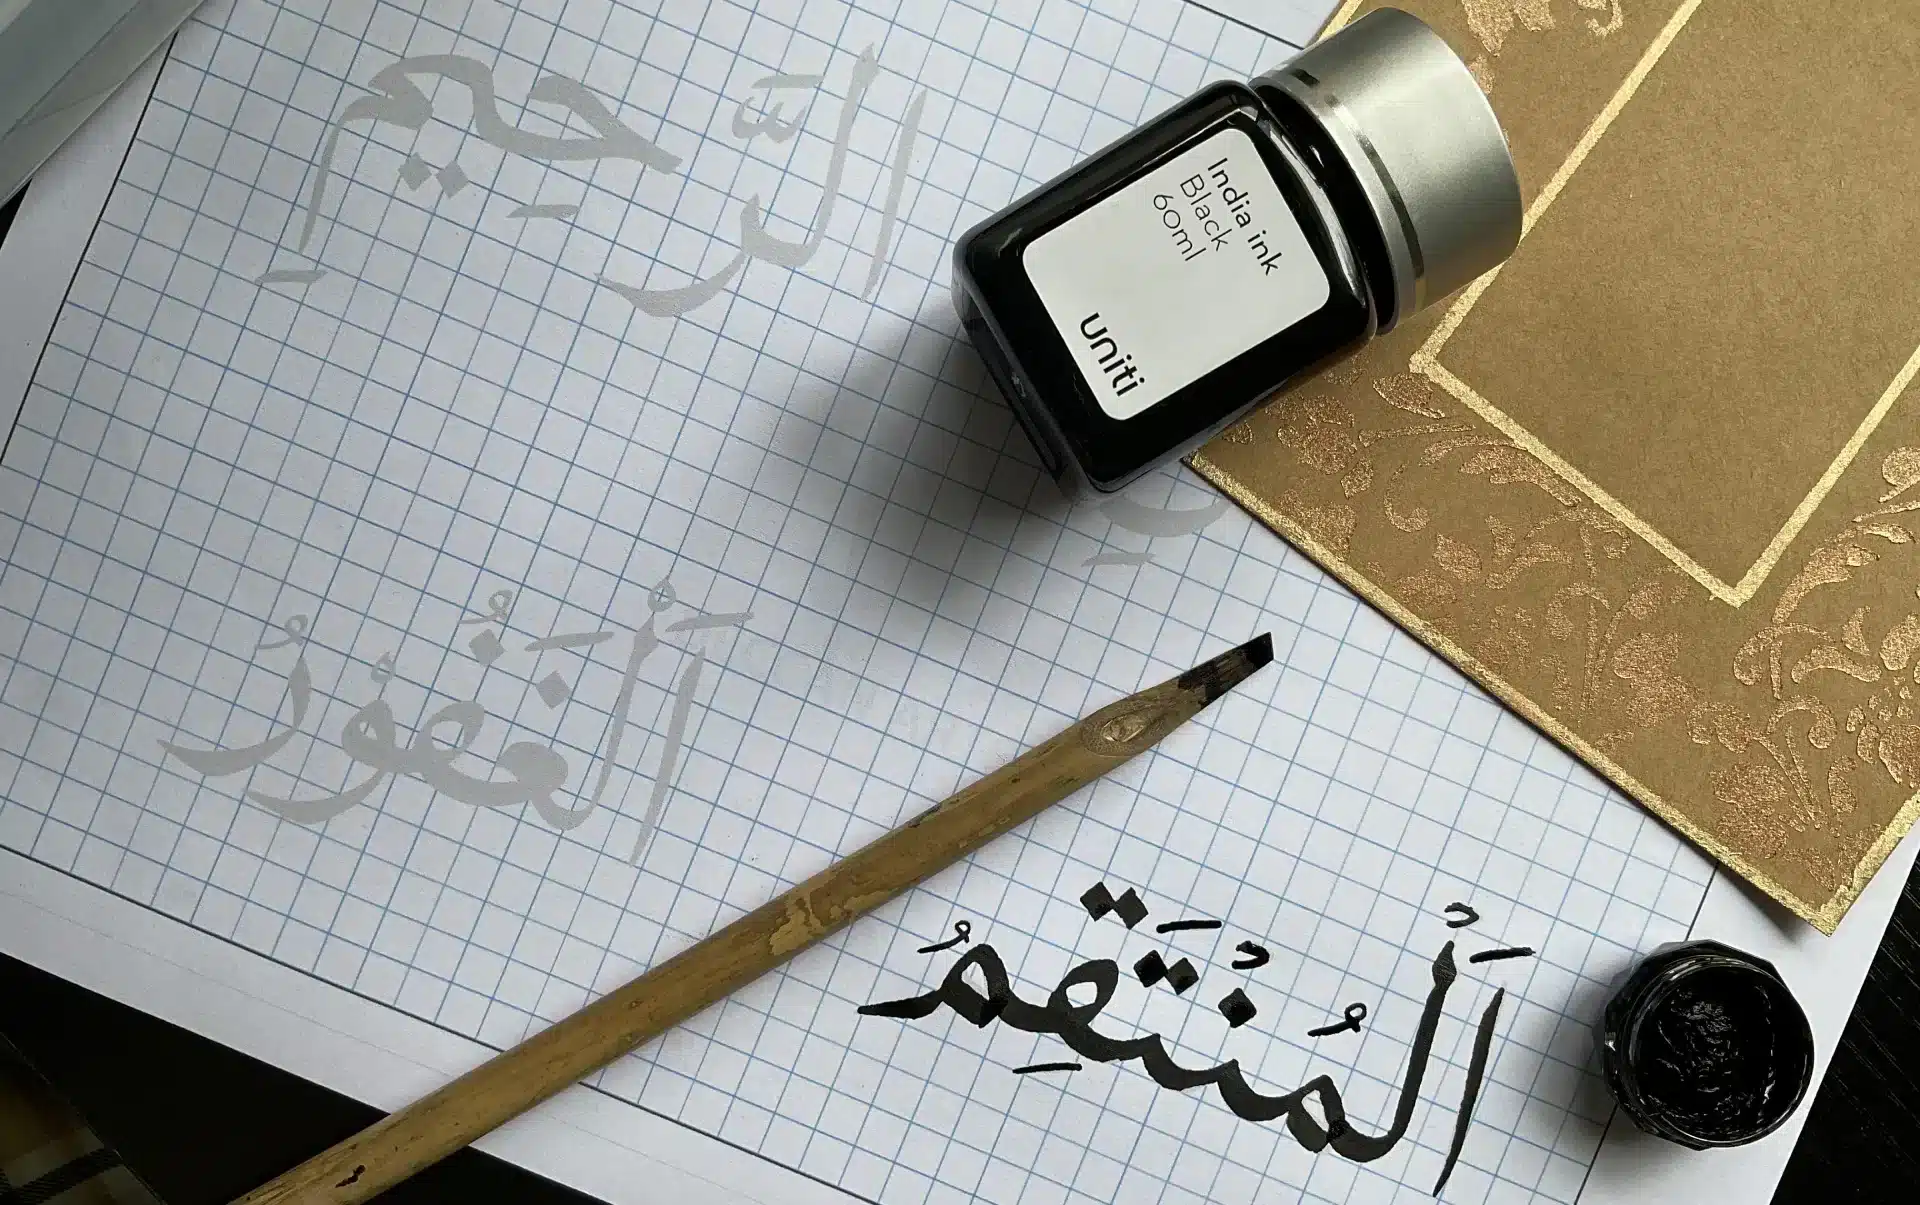 الرَّحِيمِ
India ink
Black
60ml
uniti
اَلْغَفُوْرُ
اَلْمُنْتَقِمُ